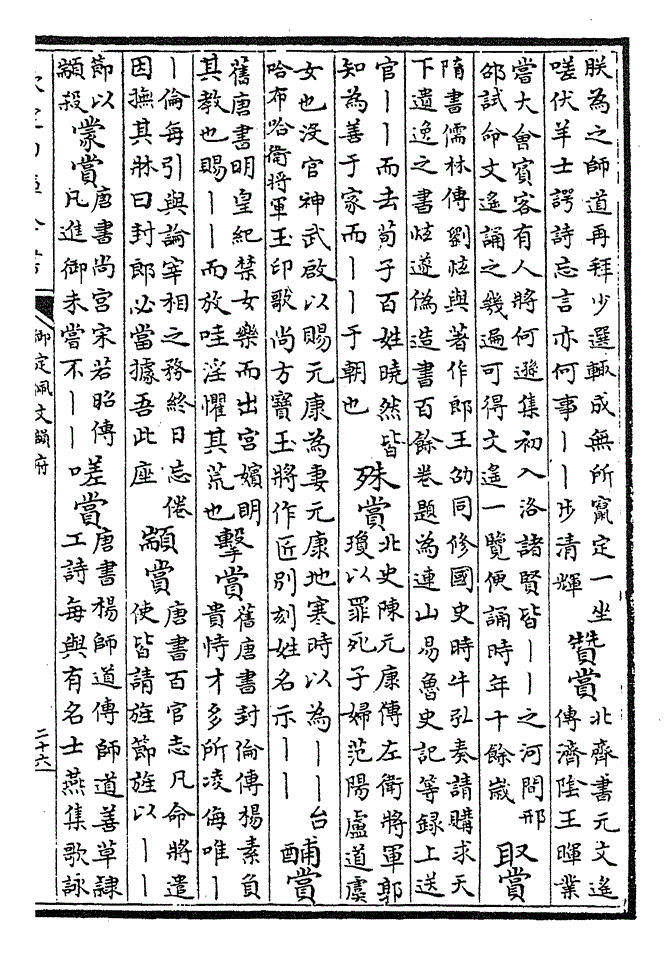 朕為之師道再拜少選輒成無所竄定一坐
嗟伏羊士諤詩忘言亦何事丨丨步清輝
贊賞
北齊書元文遙
傳濟陰王暉業
嘗大會賓客有人將何遜集初入洛諸賢皆丨丨之河間邢
邵試命文遙誦之幾遍可得文遙一覽便誦時年十餘歲
取賞
隋書儒林傳劉炫與著作郎王劭同修國史時牛弘奏請購求天
下遺逸之書炫遂偽造書百餘卷題為連山易魯史記等録上送
官丨丨而去荀子百姓曉然皆
知為善于家而丨丨于朝也
殊賞
北史陳元康傳左衛將軍郭
瓊以罪死子婦范陽盧道虞
女也沒官神武啟以賜元康為妻元康地寒時以為丨丨台
哈布哈衛將軍玉印歌尚方寶玉將作匠別刻姓名示丨丨
酺賞
舊唐書明皇紀禁女樂而出宮嬪明
其教也賜丨丨而放哇淫懼其荒也
擊賞
舊唐書封倫傳楊素負
貴恃才多所凌侮唯丨
丨倫每引與論宰相之務終日忘倦
因撫其牀曰封郎必當據吾此座
顓賞
唐書百官志凡命將遣
使皆請旌節旌以丨丨
節以
顓殺
蒙賞
唐書尚宮宋若昭傳
凡進御未嘗不丨丨
嗟賞
唐書楊師道傳師道善草隸
工詩每與有名士燕集歌詠
御定佩文韻府
二十六